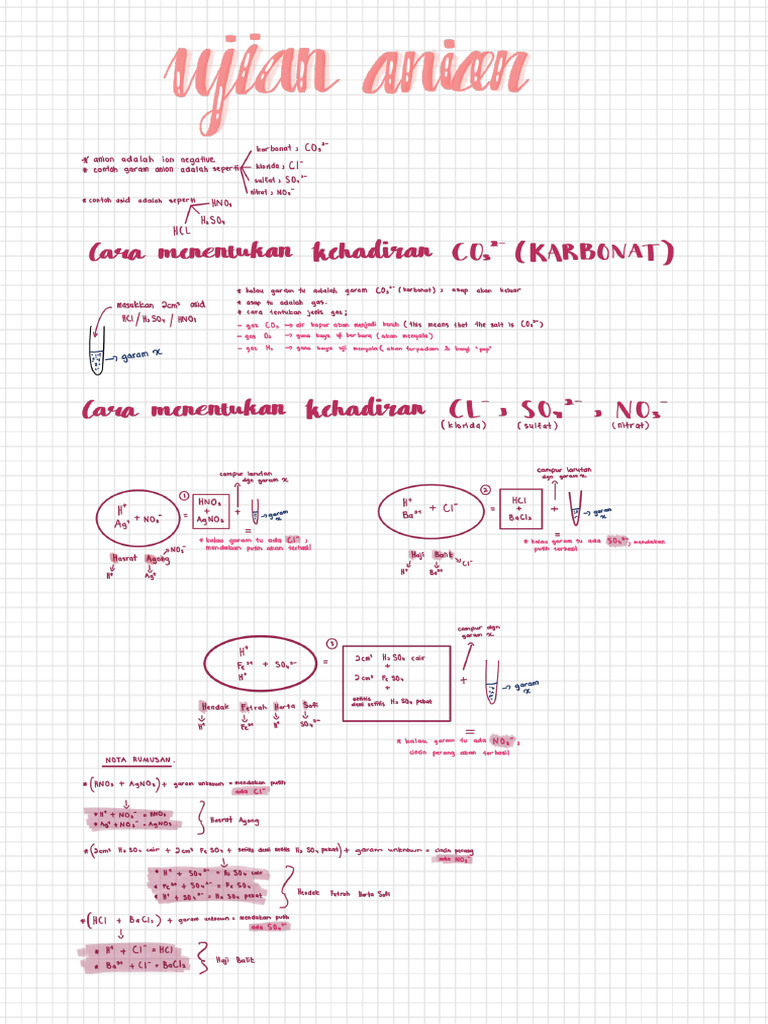 ujian anion
* anion adalah ion negative
* contoh garam anion adalah seperti
karbonat, CO₃²⁻
klorida, Cl⁻
sulfat, SO₄²⁻
nitrat, NO₃⁻
* contoh asid adalah seperti
HNO₃
H₂SO₄
HCL
Cara menentukan kehadiran CO₃²⁻ (KARBONAT)
masukkan 2cm³ asid
HCl / H₂SO₄ / HNO₃
garam x
* kalau garam tu adalah garam CO₃²⁻ (karbonat), asap akan keluar
* asap tu adalah gas.
* cara tentukan jenis gas;
- gas CO₂ → air kapur akan menjadi keruh (this means that the salt is CO₃²⁻)
- gas O₂ → guna kayu uji berbara (akan menyala)
- gas H₂ → guna kayu uji menyala (akan terpadam & bunyi 'pop'
Cara menentukan kehadiran CL⁻, SO₄²⁻, NO₃⁻
(klorida) (sulfat) (nitrat)
campur larutan
dgn garam x
H⁺
Ag⁺ + NO₃⁻
=
①
HNO₃
+
AgNO₃
+
→ garam
x
=
* kalau garam tu ada Cl⁻,
mendakan putih akan terhasil
Hasrat Agong
NO₃⁻
H⁺ Ag⁺
campur larutan
dgn garam x
H⁺
Ba²⁺ + Cl⁻
=
②
HCl
+
BaCl₂
+
→ garam
x
=
* kalau garam tu ada SO₄²⁻, mendakan
putih terhasil
Haji Balik
Cl⁻
H⁺ Ba²⁺
campur dgn
garam x
H⁺
Fe²⁺ + SO₄²⁻
H⁺
=
③
2cm³ H₂SO₄ cair
+
2cm³ FeSO₄
+
setitis
demi setitis H₂SO₄ pekat
+
→ garam
x
=
Hendak Fetrah Harta Safi
H⁺ Fe²⁺ H⁺ SO₄²⁻
* kalau garam tu ada NO₃⁻,
cincin perang akan terhasil
NOTA RUMUSAN.
* (HNO₃ + AgNO₃) + garam unknown = mendakan putih
ada Cl⁻
* H⁺ + NO₃⁻ = HNO₃
* Ag⁺ + NO₃⁻ = AgNO₃
Hasrat Agong
* (2cm³ H₂SO₄ cair + 2cm³ FeSO₄ + setitis demi setitis H₂SO₄ pekat) + garam unknown = cincin perang
ada NO₃⁻
* H⁺ + SO₄²⁻ = H₂SO₄ cair
* Fe²⁺ + SO₄²⁻ = FeSO₄
* H⁺ + SO₄²⁻ = H₂SO₄ pekat
Hendak Fetrah Harta Safi
* (HCl + BaCl₂) + garam unknown = mendakan putih
ada SO₄²⁻
* H⁺ + Cl⁻ = HCl
* Ba²⁺ + Cl⁻ = BaCl₂
Haji Balik